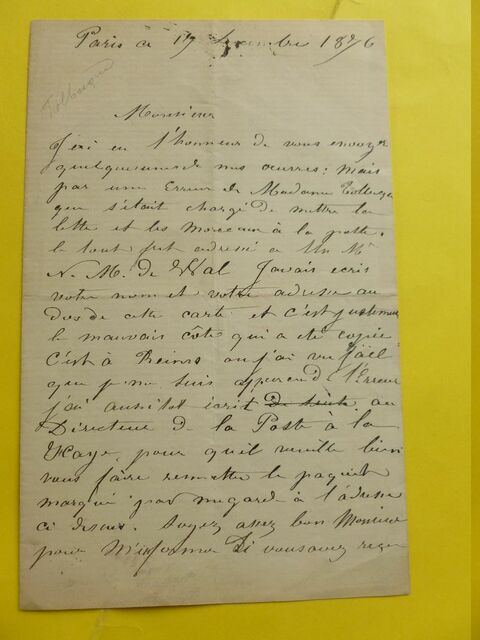 Paris ce 17 1876
Tolbecque
Monsieur
J'ai eu l'honneur de vous envoyer
quelques unes de mes œuvres; mais
par une Erreur de Madame Tolbecque
qui s'était chargé de mettre la
lettre et les morceaux à la poste.
le tout fut adressé a Un Mr
N. M. de Wal J'avais ecris
votre nom et votre adresse au
dos de cette carte et c'est justement
le mauvais côté qui a été copié
C'est à Reims ou j'ai vu
que je me suis apperçu de l'Erreur
j'ai aussitot écrit au
Directeur de la Poste à la
Haye, pour qu'il veuille bien
vous faire remettre le paquet
marqué par megarde à l'adresse
ci dessus. Soyez assez bon Monsieur
pour m'informer Si vous avez reçu